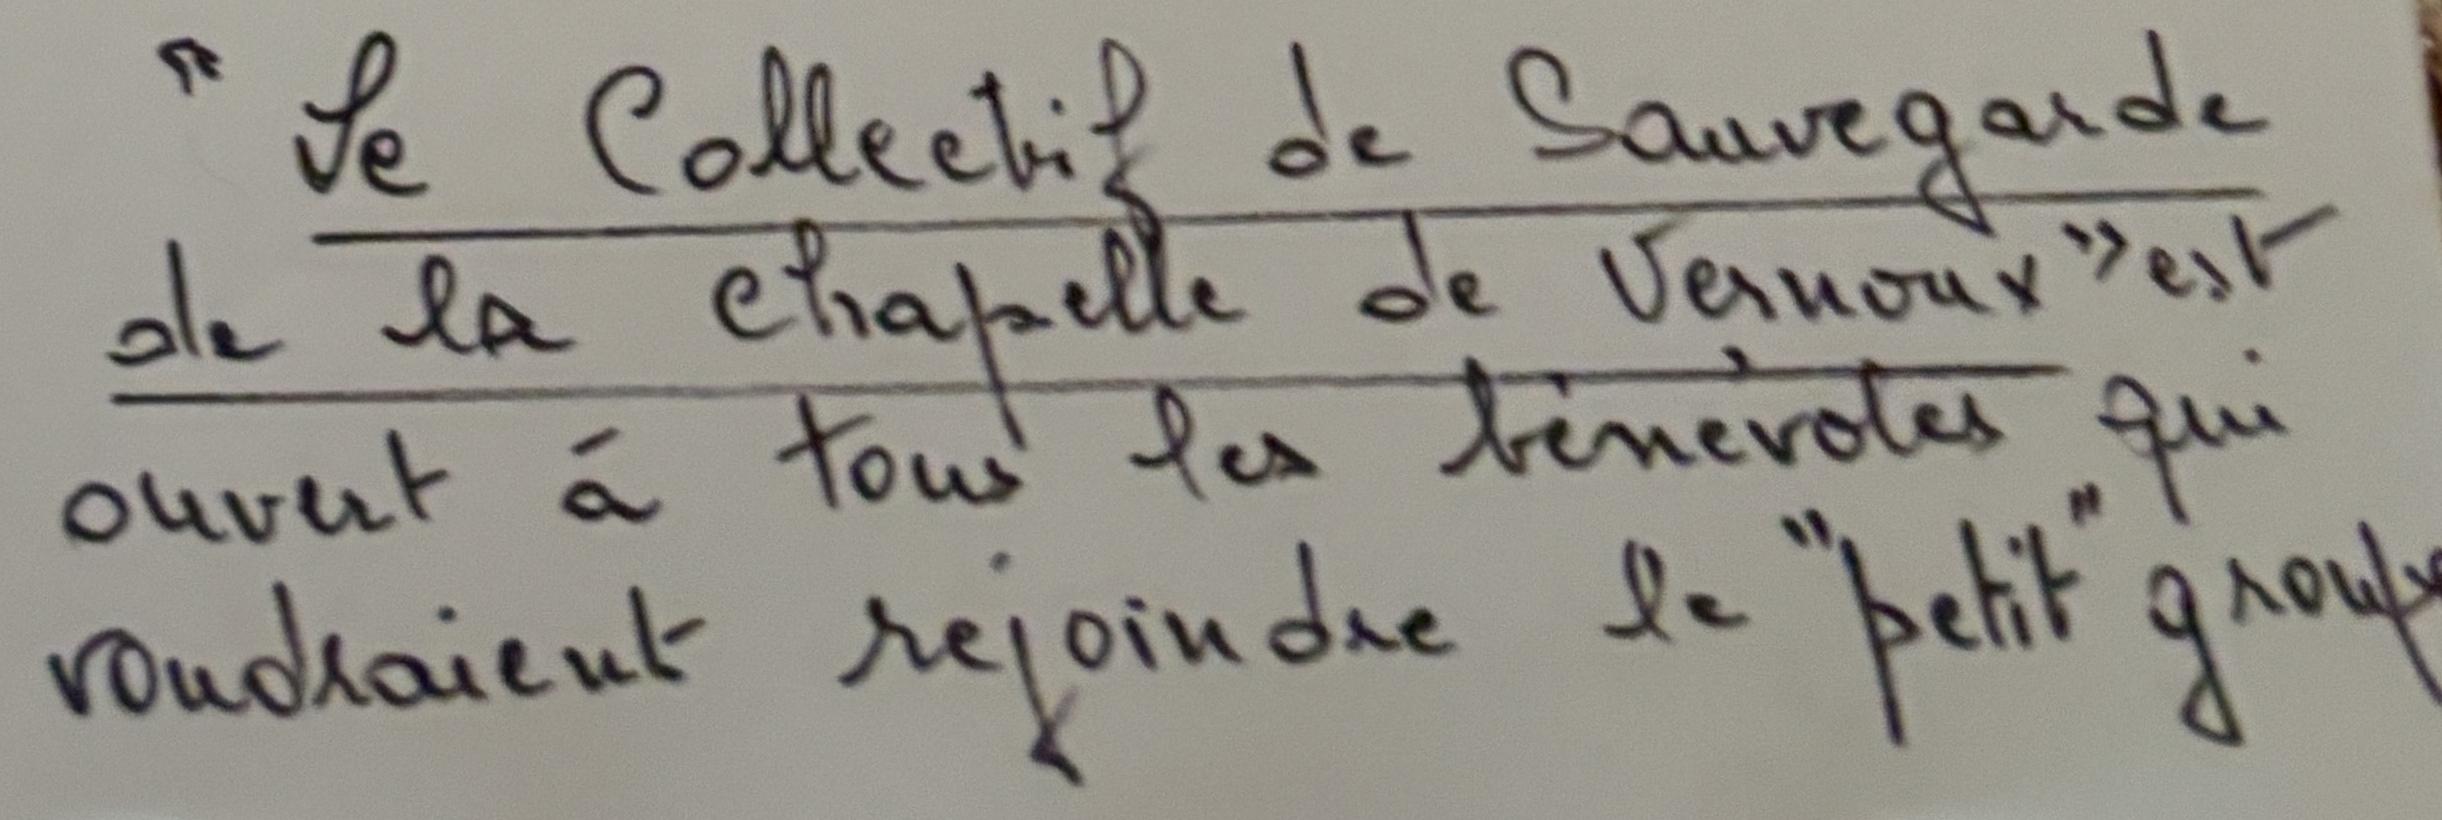 "Le Collectif de Sauvegarde
de la chapelle de Vernoux" est
ouvert à tous les bénévoles qui
voudraient rejoindre le "petit" groupe